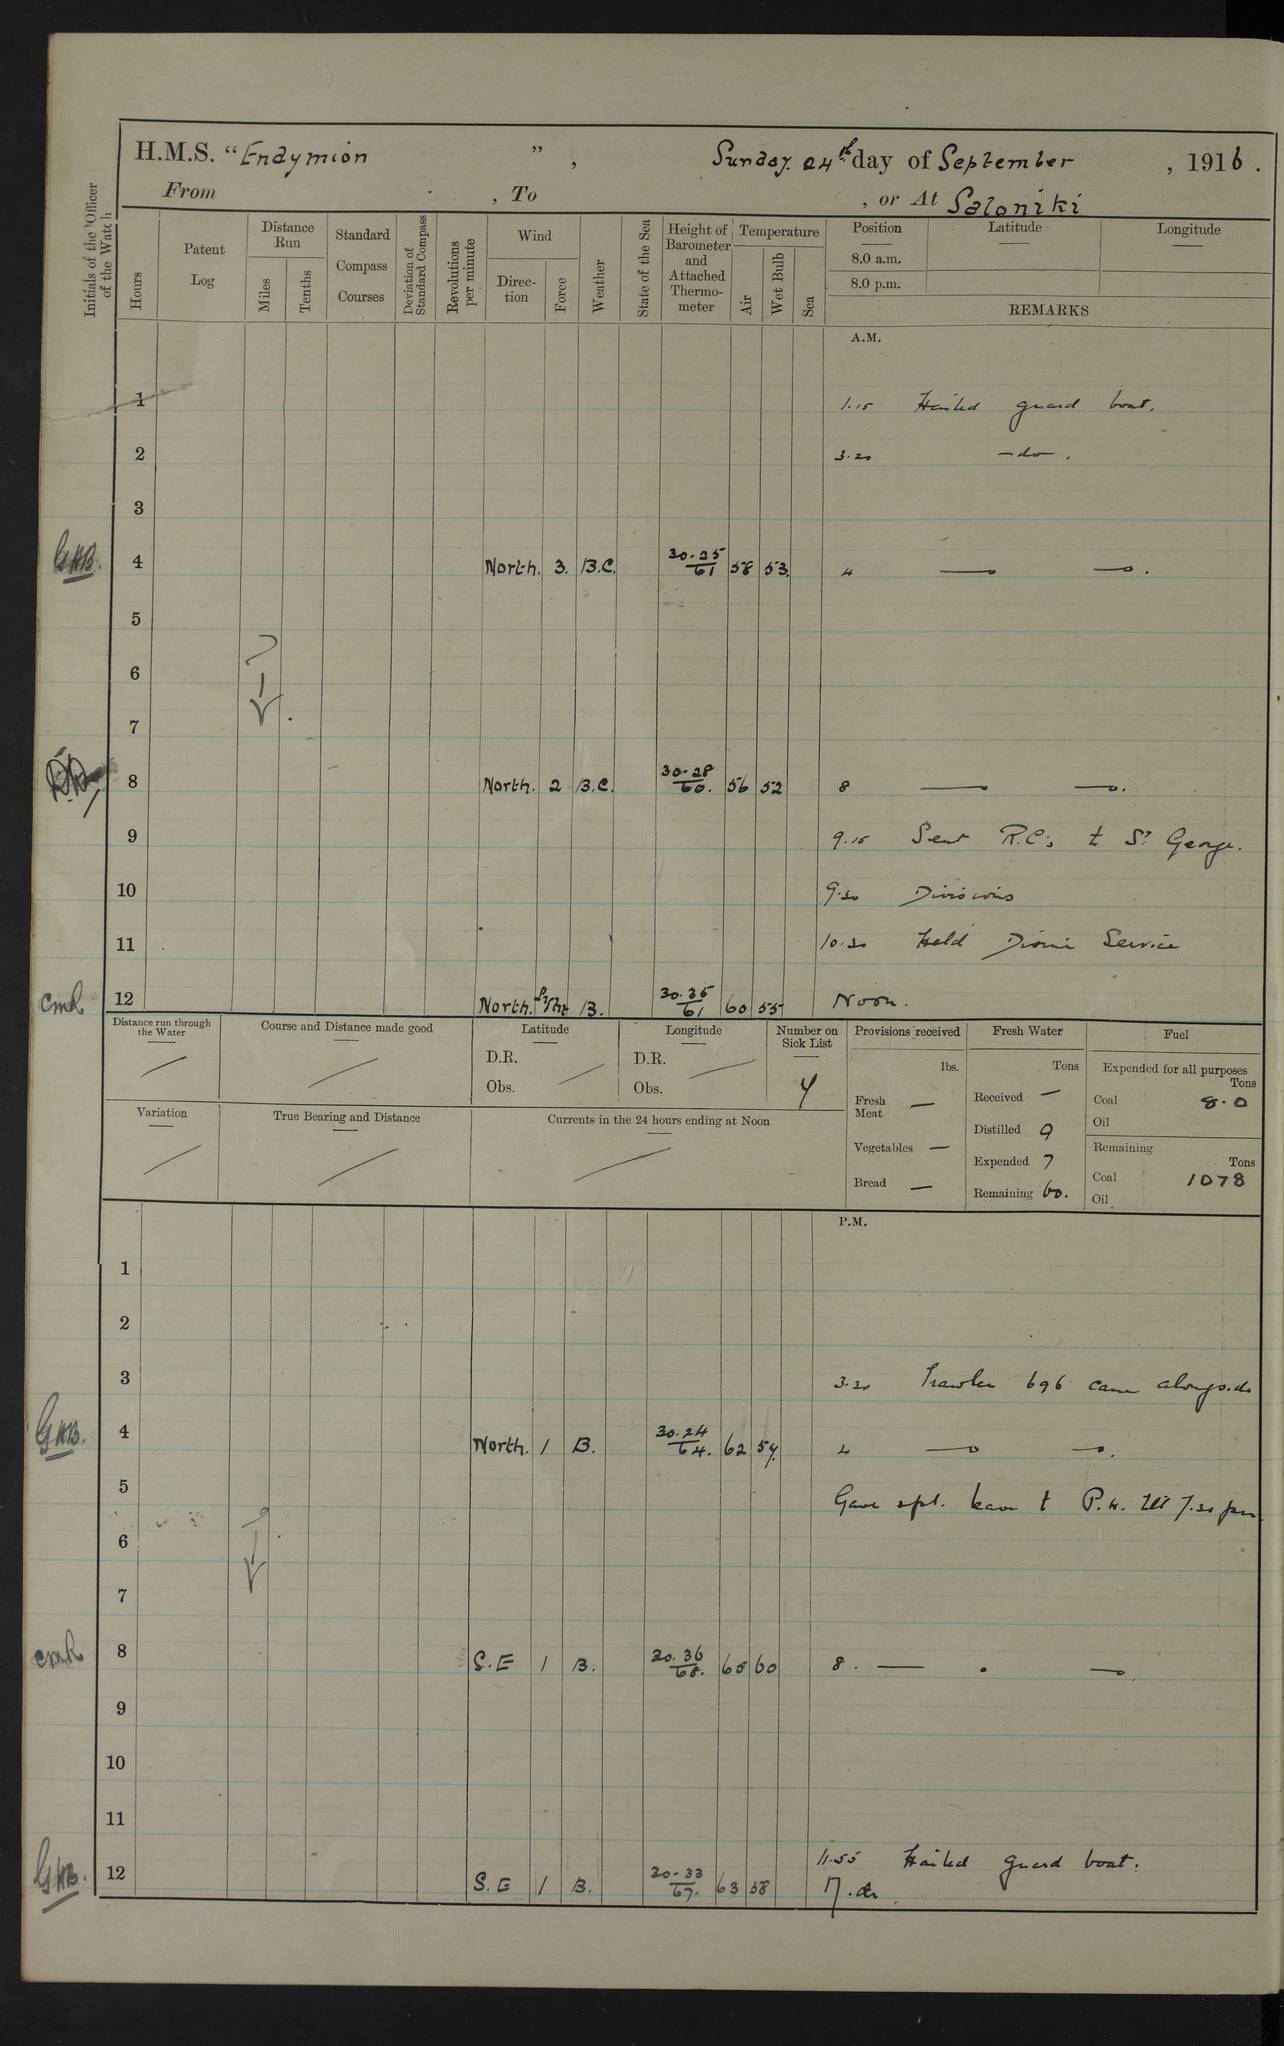 H.M.S. "Endymion", Sunday. 24th day of September, 1916.
From , To , or At Saloniki
Initials of the Officer of the Watch
Hours
Patent Log
Distance Run
Miles
Tenths
Standard Compass Courses
Deviation of Standard Compass
Revolutions per minute
Wind
Direction
Force
Weather
State of the Sea
Height of Barometer and Attached Thermometer
Temperature
Air
Wet Bulb
Sea
Position Latitude Longitude
8.0 a.m.
8.0 p.m.
REMARKS
A.M.
1 1.15 Hailed guard boat.
2 3.20 —do—.
3
GHB. 4 North. 3. B.C. 30.25/61 58 53. 4 — —.
5
6
7
8 North. 2 B.C. 30.28/60. 56 52 8 — —.
9 9.15 Sent R.C's to St George.
10 9.30 Divisions
11 10.30 Held Divine Service
CMR 12 North. Lght B. 30.35/61 60 55 Noon.
Distance run through the Water
Course and Distance made good
Latitude
D.R.
Obs.
Longitude
D.R.
Obs.
Number on Sick List
4
Provisions received
lbs.
Fresh Meat —
Vegetables —
Bread —
Fresh Water
Tons
Received —
Distilled 9
Expended 7
Remaining 60.
Fuel
Expended for all purposes
Tons
Coal 8.0
Oil
Remaining
Tons
Coal 1078
Oil
Variation
True Bearing and Distance
Currents in the 24 hours ending at Noon
P.M.
1
2
3 3.20 Trawler 696 came alongside
GHB. 4 North. 1 B. 30.24/64. 62 54. 4 — —.
5 Gave spl. leave to P.W. till 7.30 pm.
6
7
CMR 8 S.E 1 B. 30.36/68. 65 60 8. — . —.
9
10
11
11.55 Hailed guard boat.
GHB. 12 S.E 1 B. 30.33/67. 63 58